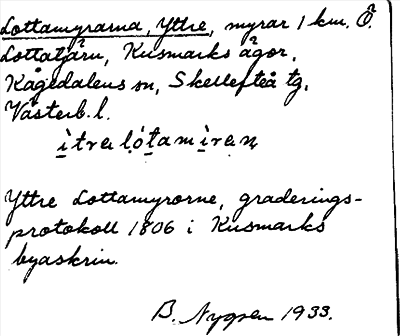 Lottamyrarna, Yttre, myrar 1 km. Ö.
Lottatjärn, Kusmarks ägor,
Kågedalens sn, Skellefteå tg,
Västerb. l.
Yttre Lottamyrorne, graderings-
protokoll 1806 i Kusmarks
byaskrin.
B. Nygren 1933.